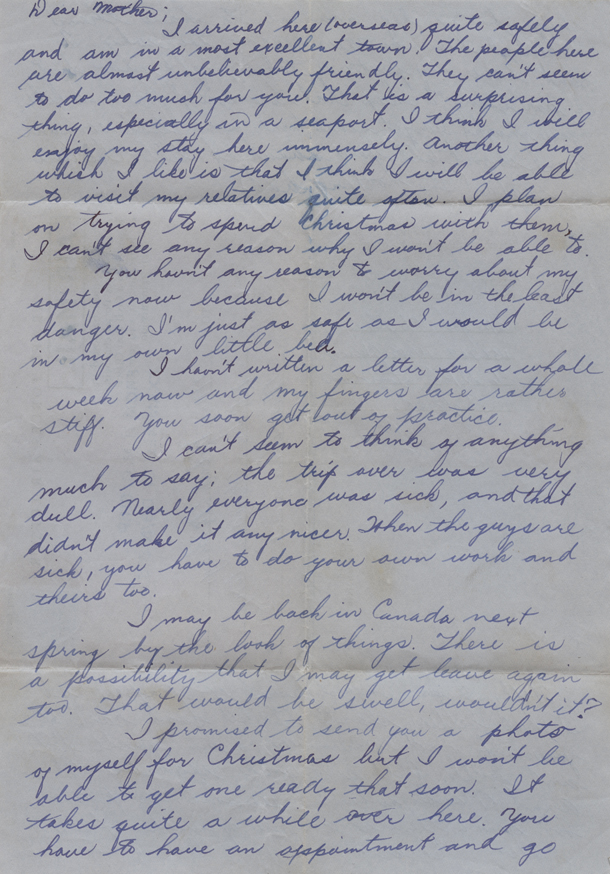 Dear Mother;
I arrived here (overseas) quite safely
and am in a most excellent town. The people here
are almost unbelievably friendly. They can't seem
to do too much for you. That is a surprising
thing, especially in a seaport. I think I will
enjoy my stay here immensely. Another thing
which I like is that I think I will be able
to visit my relatives quite often. I plan
on trying to spend Christmas with them,
I can't see any reason why I won't be able to.
You havn't any reason to worry about my
safety now because I won't be in the least
danger. I'm just as safe as I would be
in my own little bed.
I havn't written a letter for a whole
week now and my fingers are rather
stiff. You soon get out of practice.
I can't seem to think of anything
much to say; the trip over was very
dull. Nearly everyone was sick, and that
didn't make it any nicer. When the guys are
sick, you have to do your own work and
theirs too.
I may be back in Canada next
spring by the look of things. There is
a possibility that I may get leave again
too. That would be swell, wouldn't it?
I promised to send you a photo
of myself for Christmas but I won't be
able to get one ready that soon. It
takes quite a while over here. You
have to have an appointment and go